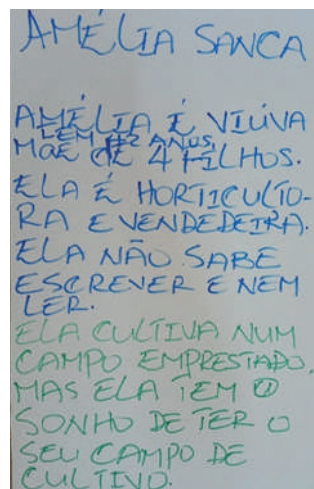 AMÉLIA SANCA
AMÉLIA É VIÚVA
TEM 42 ANOS
MÃE DE 4 FILHOS.
ELA É HORTICULTO-
RA E VENDEDEIRA.
ELA NÃO SABE
ESCREVER E NEM
LER.
ELA CULTIVA NUM
CAMPO EMPRESTADO,
MAS ELA TEM O
SONHO DE TER O
SEU CAMPO DE
CULTIVO.